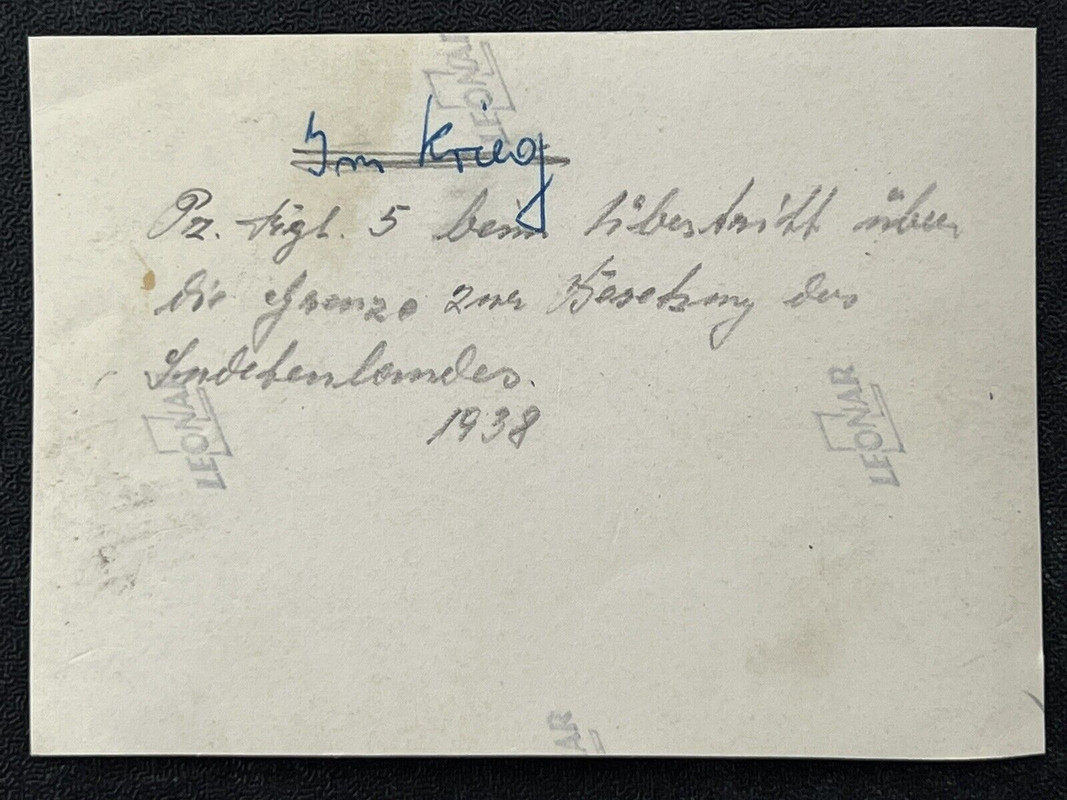 Im Krieg
Pz. Rgt. 5 beim Übertritt über
die Grenze zur Besetzung des
Sudetenlandes.
1938
LEONAR
LEONAR
LEONAR
AR